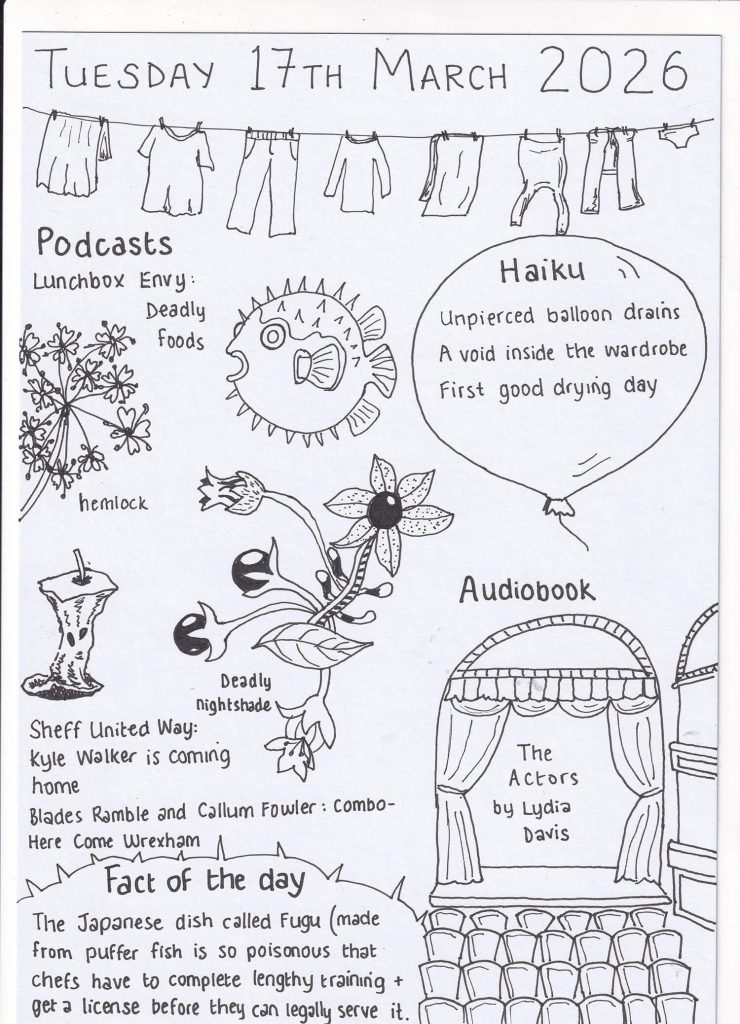 TUESDAY 17TH MARCH 2026
Podcasts
Lunchbox Envy:
Deadly
Foods
hemlock
Deadly
nightshade
Sheff United Way:
Kyle Walker is coming
home
Blades Ramble and Callum Fowler: Combo-
Here Come Wrexham
Haiku
Unpierced balloon drains
A void inside the wardrobe
First good drying day
Audiobook
The
Actors
by Lydia
Davis
Fact of the day
The Japanese dish called Fugu (made
from puffer fish is so poisonous that
chefs have to complete lengthy training +
get a license before they can legally serve it.